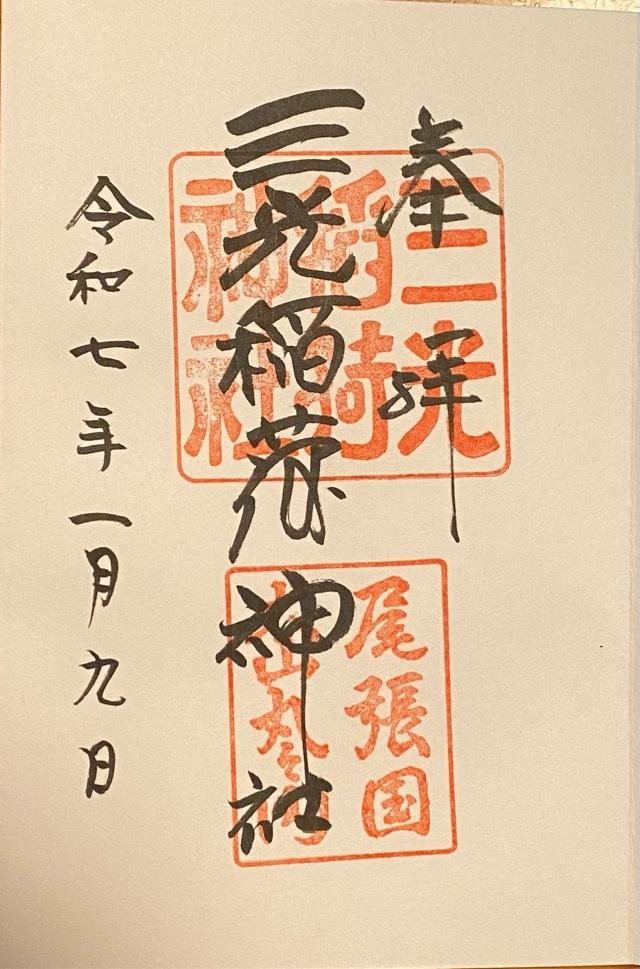 奉拝
三光稲荷神社
令和七年一月九日
三光
稲荷
神社
尾張国